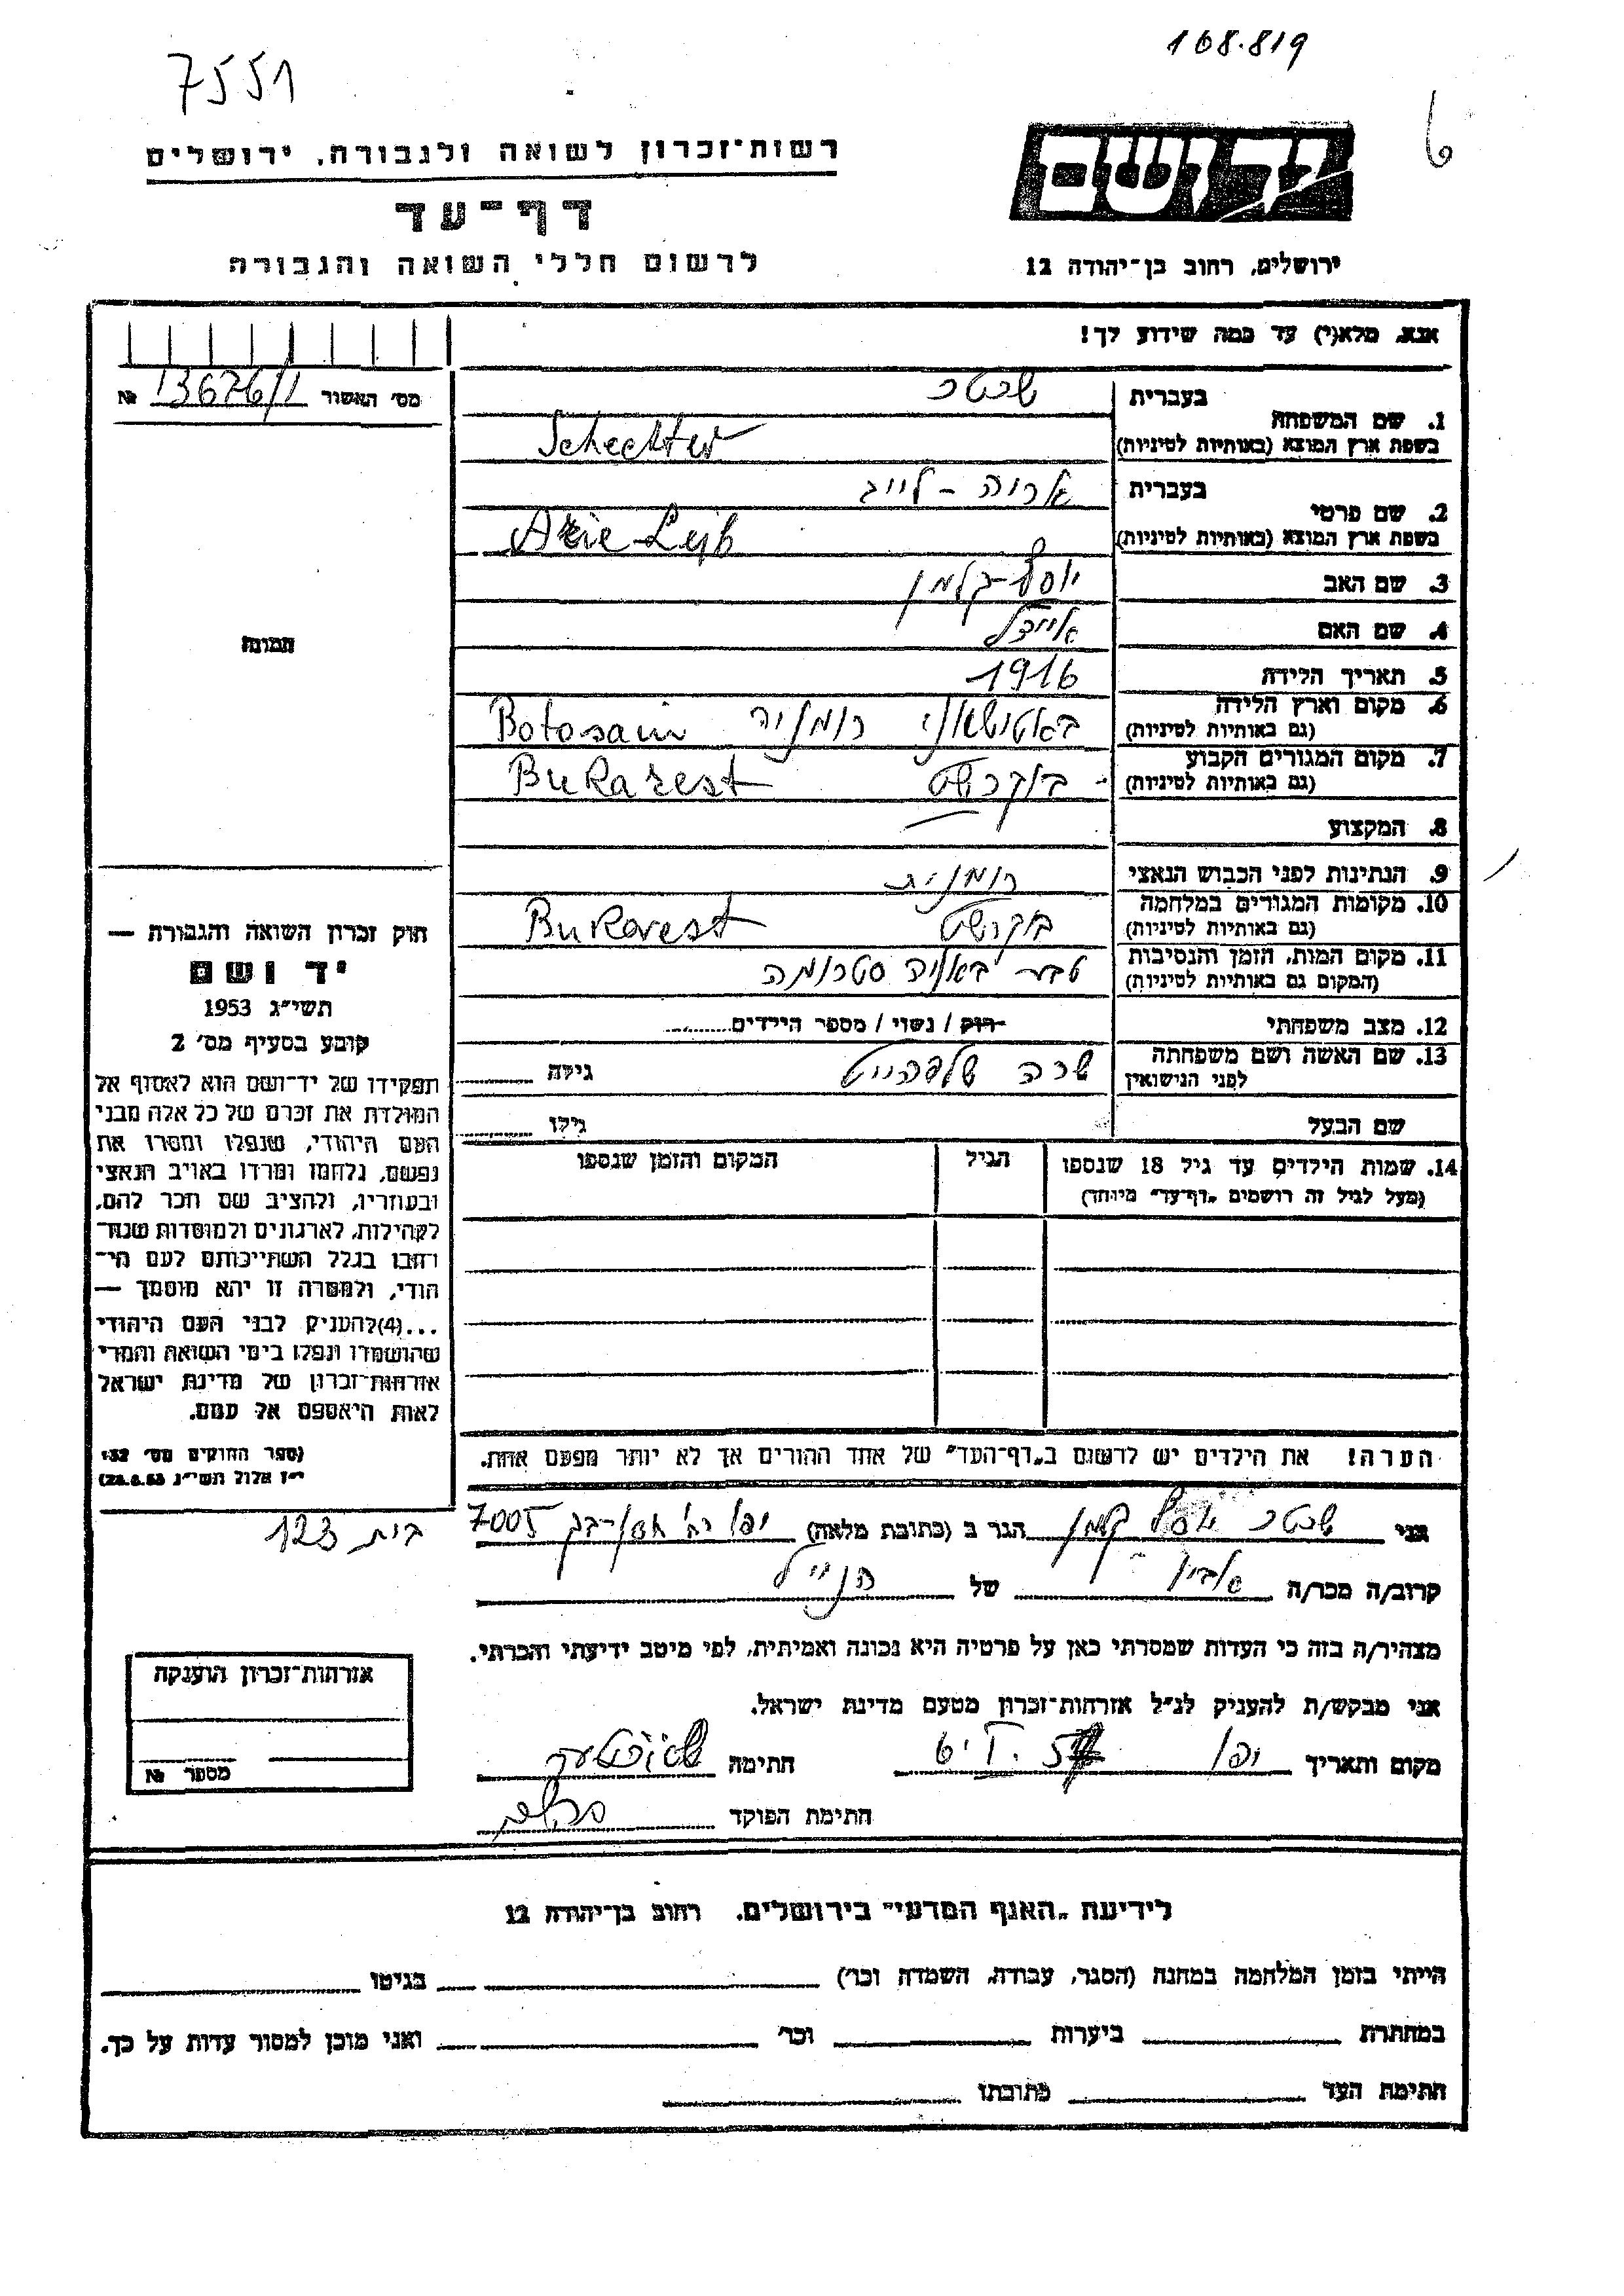 168.819
7551
6
יד ושם
רשות־זכרון לשואה ולגבורה, ירושלים
דף־עד
לרשום חללי השואה והגבורה
ירושלים, רחוב בן־יהודה 12
אנא, מלא(י) עד כמה שידוע לך!
מס׳ האשור 13676/1 №
1. שם המשפחה
בעברית שכטר
בשפת ארץ המוצא (באותיות לטיניות) Schechter
2. שם פרטי
בעברית אריה - לייב
בשפת ארץ המוצא (באותיות לטיניות) Arie Leib
3. שם האב יוסף-קלמן
4. שם האם איידל
5. תאריך הלידה 1916
6. מקום וארץ הלידה
(גם באותיות לטיניות) באטושאני רומניה Botosani
7. מקום המגורים הקבוע
(גם באותיות לטיניות) בוקרשט Bukarest
8. המקצוע —
9. הנתינות לפני הכבוש הנאצי רומנית
10. מקומות המגורים במלחמה
(גם באותיות לטיניות) בוקרשט Bukarest
11. מקום המות, הזמן והנסיבות
(המקום גם באותיות לטיניות) טבע באניה סטרומה
12. מצב משפחתי רוק / נשוי / מספר הילדים
13. שם האשה ושם משפחתה
לפני הנישואין שרה גילה
שם הבעל גילו
14. שמות הילדים עד גיל 18 שנספו
(מעל לגיל זה רושמים „דף־עד״ מיוחד)
הגיל
המקום והזמן שנספו
הערה! את הילדים יש לרשום ב„דף־העד״ של אחד ההורים אך לא יותר מפעם אחת.
תמונה
חוק זכרון השואה והגבורה —
יד ושם
תשי״ג 1953
קובע בסעיף מס׳ 2
תפקידו של יד־ושם הוא לאסוף אל
המולדת את זכרם של כל אלה מבני
העם היהודי, שנפלו ומסרו את
נפשם, נלחמו ומרדו באויב הנאצי
ובעוזריו, ולהציב שם וזכר להם,
לקהילות, לארגונים ולמוסדות שנח־
רבו בגלל השתייכותם לעם הי־
הודי, ולמטרה זו יהא מוסמך —
...(4)להעניק לבני העם היהודי
שהושמדו ונפלו בימי השואה והמרי
אזרחות־זכרון של מדינת ישראל
לאות היאספם אל עמם.
(ספר החוקים מס׳ 132
י״ז אלול תשי״ג 28.8.53)
אני שכטר יוסף קלמן הגר ב (כתובת מלאה) יפו 7005
בית 123
קרוב/ה מכר/ה אביו של הנ״ל
מצהיר/ה בזה כי העדות שמסרתי כאן על פרטיה היא נכונה ואמיתית, לפי מיטב ידיעתי והכרתי.
אני מבקש/ת להעניק לנ״ל אזרחות־זכרון מטעם מדינת ישראל.
מקום ותאריך יפו חתימה
חתימת הפוקד
אזרחות־זכרון הוענקה
מספר №
לידיעת „האגף המדעי״ בירושלים, רחוב בן־יהודה 12
הייתי בזמן המלחמה במחנה (הסגר, עבודה, השמדה וכו׳) בגיטו
במחתרת ביערות וכו׳ ואני מוכן למסור עדות על כך.
חתימת העד כתובתו